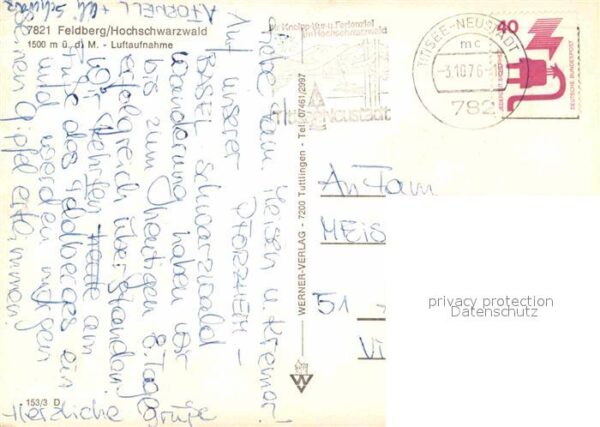 7821 Feldberg/Hochschwarzwald
1500 m ü. d. M. - Luftaufnahme
Ihr Kneipp-Kur- u. Ferienziel
im Hochschwarzwald
Titisee-Neustadt
TITISEE-NEUSTADT
mc
-3.10.76
782
40
DEUTSCHE BUNDESPOST
WERNER-VERLAG - 7200 Tuttlingen - Tel. 07461/2997
W
153/3 D
Liebe Fam. Meisen u. Kremer!
Auf unserer PFORZHEIM -
BASEL Schwarzwald
wanderung haben wir
bis zum heutigen 8. Tag
erfolgreich überstanden.
Wir kehrten am
Fuße des Feldberges ein
und werden morgen
seinen Gipfel erklimmen.
Herzliche Grüße
An Fam
MEIS
51
privacy protection
Datenschutz